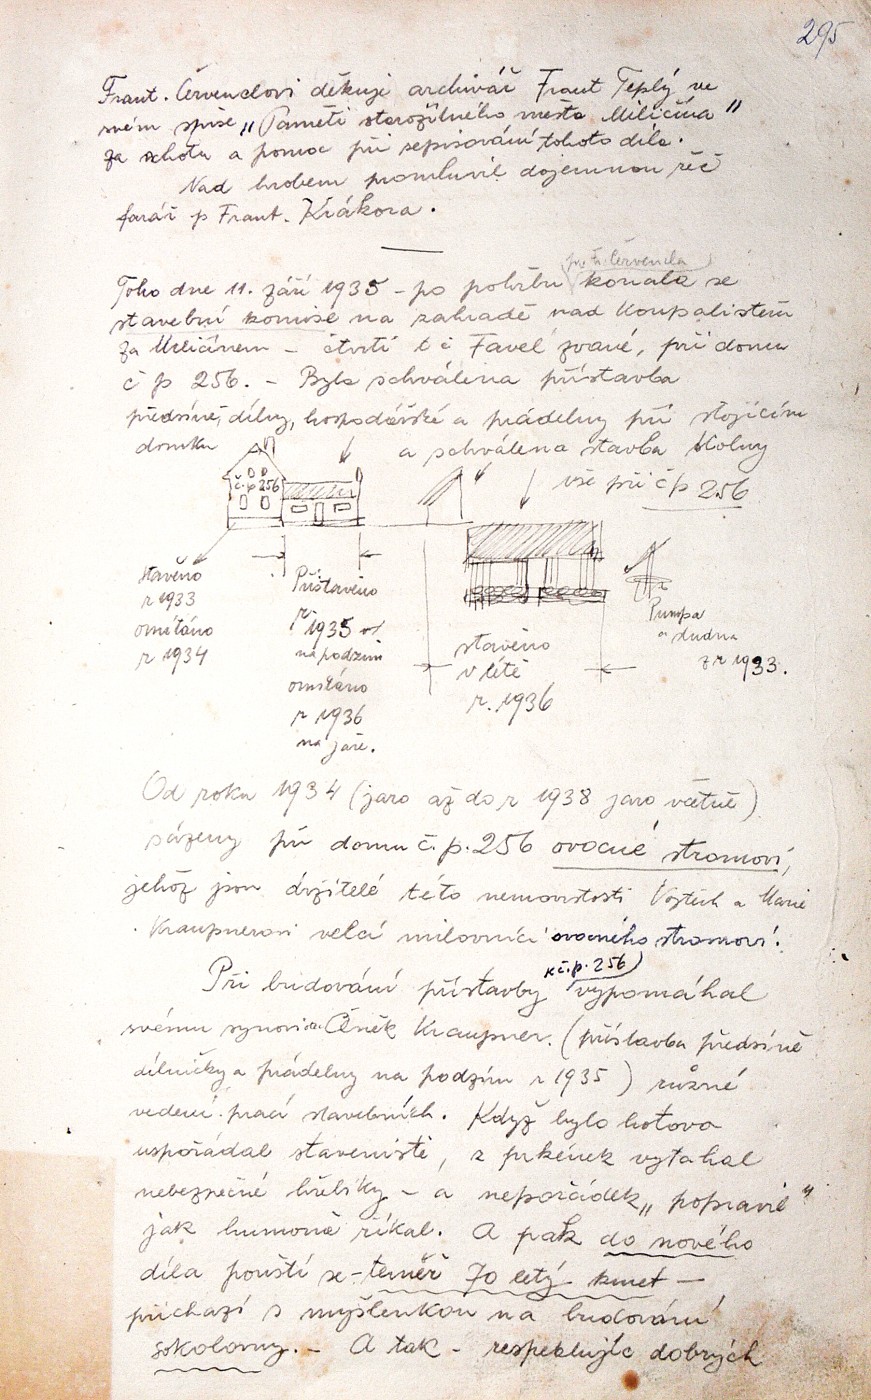 295
Frant. Červenclovi děkuje archivář Frant Teplý ve
svém spise „Paměti starožitného města Miličína"
za ochotu a pomoc při sepisování tohoto díla.
Nad hrobem promluvil dojemnou řeč
farář p Frant. Krákora.
Toho dne 11. září 1935 – po pohřbu konala se
stavební komise na zahradě nad Koupalistěm
za Miličínem – čtvrtí t č Favel zvané, při domu
č p 256. – Byla schválena přístavba
předsíně, dílny, hospodářské a prádelny při stojícím
domku
a schválena stavba Kolny
vše při č p 256
č. p 256
staveno
r 1933
omítáno
r 1934
Přistaveno
r 1935
na podzim
omítáno
r 1936
na jaře.
staveno
v létě
r. 1936
Pumpa
a studna
z r 1933.
Od roku 1934 (jaro až do r 1938 jaro včetně)
sázeny při domu č. p. 256 ovocné stromoví,
jehož jsou držitelé této nemovitosti Vojtěch a Marie
Kraupnerovi velcí milovníci ovocného stromoví.
k č. p. 256
Při budování přístavby vypomáhal
svému synovi Čeněk Kraupner. (přístavba předsíně
dílničky a prádelny na podzim r 1935) různé
vedení prací stavebních. Když bylo hotovo
uspořádal staveniště, z prkének vytahal
nebezpečné hřebíky – a nepořádek „popravil"
jak humorně říkal. A pak do nového
díla pouští se – téměř 70 letý kmet –
přichází s myšlenkou na budování
sokolovny. – A tak – respektujíc dobrých